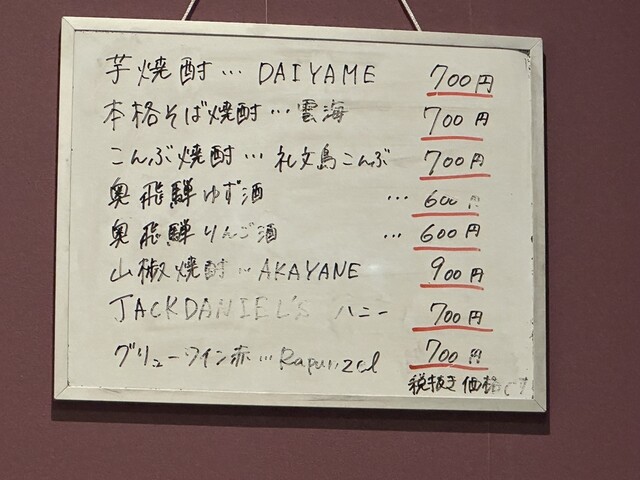 芋焼酎… DAIYAME 700円
本格そば焼酎…雲海 700円
こんぶ焼酎… 礼文島こんぶ 700円
奥飛騨ゆず酒 … 600円
奥飛騨りんご酒 … 600円
山椒焼酎…AKAYANE 900円
JACKDANIEL'S ハニー 700円
グリューワイン赤…Rapunzel 700円
税抜き価格です